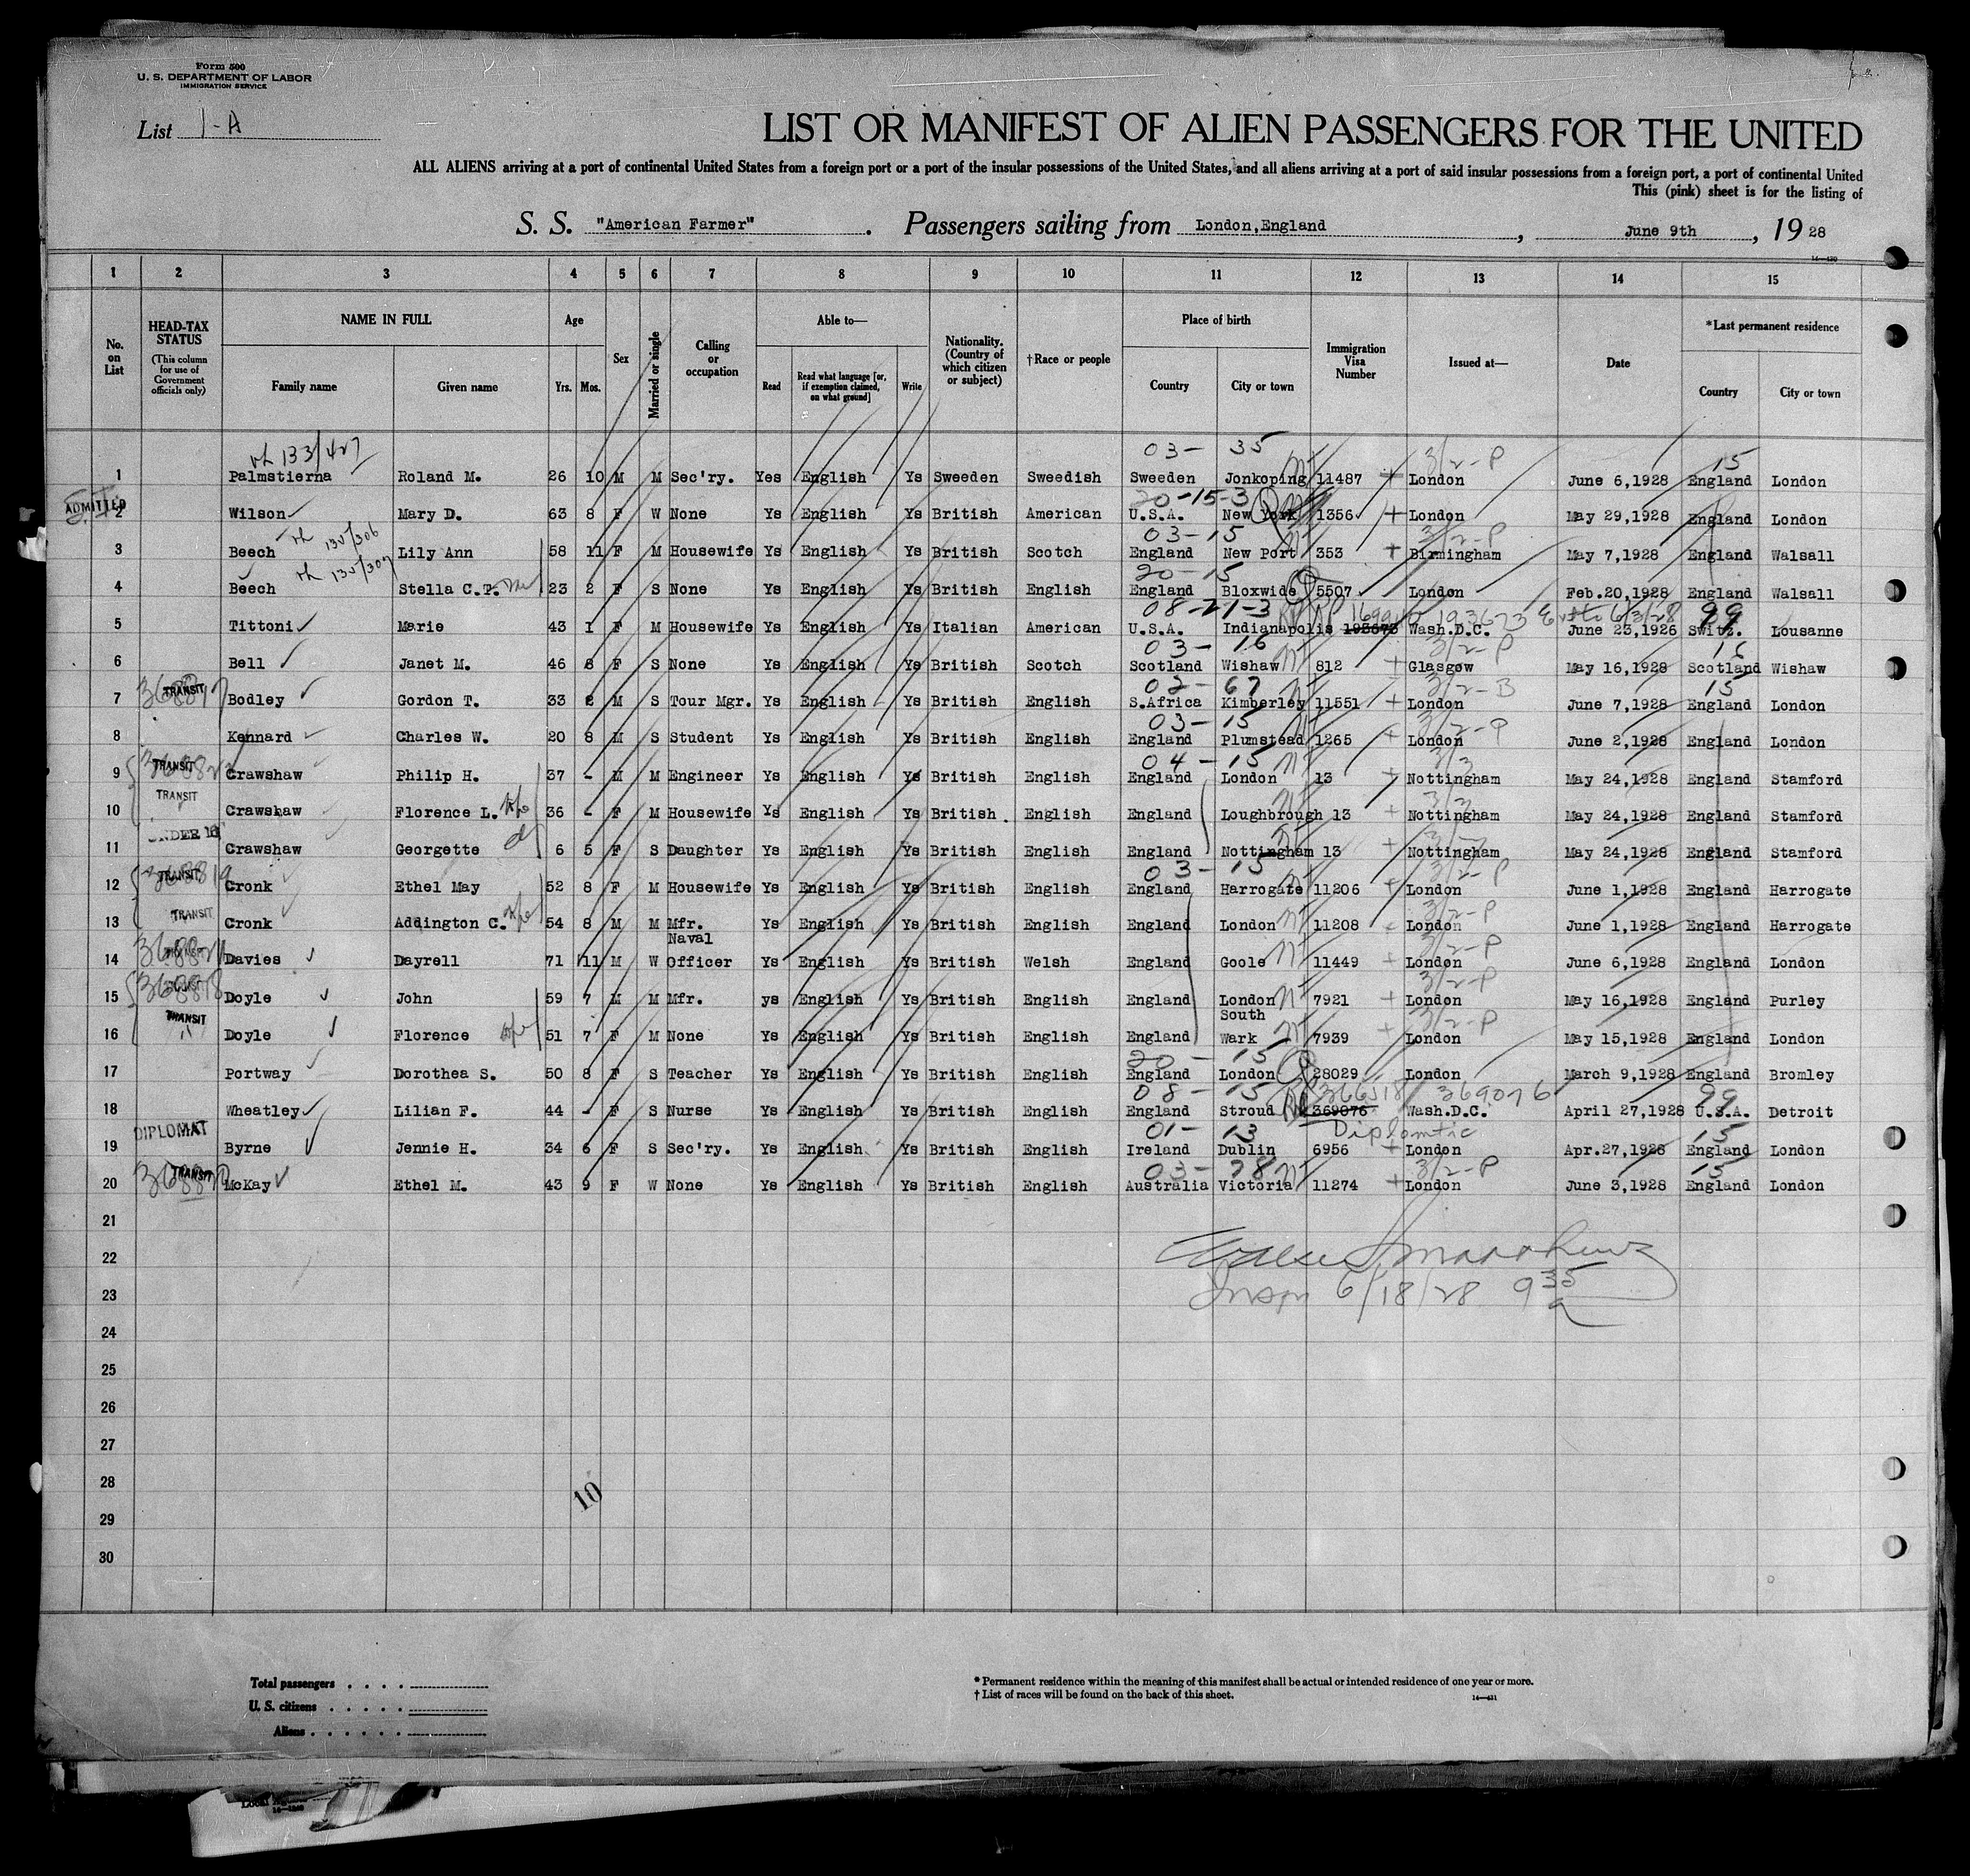 Form 500
U. S. DEPARTMENT OF LABOR
IMMIGRATION SERVICE
List 1-A
LIST OR MANIFEST OF ALIEN PASSENGERS FOR THE UNITED
ALL ALIENS arriving at a port of continental United States from a foreign port or a port of the insular possessions of the United States, and all aliens arriving at a port of said insular possessions from a foreign port, a port of continental United
This (pink) sheet is for the listing of
S. S. "American Farmer". Passengers sailing from London,England, June 9th, 19 28
1 2 3 4 5 6 7 8 9 10 11 12 13 14 15
No. on List HEAD-TAX STATUS (This column for use of Government officials only) NAME IN FULL Family name Given name Age Yrs. Mos. Sex Married or single Calling or occupation Able to— Read Read what language [or, if exemption claimed, on what ground] Write Nationality. (Country of which citizen or subject) †Race or people Place of birth Country City or town Immigration Visa Number Issued at— Date *Last permanent residence Country City or town
133/427 03- 35 3/2-P 15
1 Palmstierna Roland M. 26 10 M M Sec'ry. Yes English Ys Sweden Swedish Sweden Jonkoping 11487 London June 6,1928 England London
ADMITTED 20-15-3
2 Wilson Mary D. 63 8 F W None Ys English Ys British American U.S.A. New York 1356 London May 29,1928 England London
135/306 03-15 3/2-P
3 Beech Lily Ann 58 11 F M Housewife Ys English Ys British Scotch England New Port 353 Birmingham May 7,1928 England Walsall
135/307 20-15
4 Beech Stella C.T. 23 2 F S None Ys English Ys British English England Bloxwide 5507 London Feb.20,1928 England Walsall
08-21-3 193673 6/3/28 99
5 Tittoni Marie 43 1 F M Housewife Ys English Ys Italian American U.S.A. Indianapolis 193673 Wash.D.C. June 23,1926 Switz. Lousanne
03- 16 3/2-P 16
6 Bell Janet M. 46 8 F S None Ys English Ys British Scotch Scotland Wishaw 812 Glasgow May 16,1928 Scotland Wishaw
TRANSIT 02- 67 3/2-B 15
7 Bodley Gordon T. 33 2 M S Tour Mgr. Ys English Ys British English S.Africa Kimberley 11551 London June 7,1928 England London
03- 15 3/2-P
8 Kennard Charles W. 20 8 M S Student Ys English Ys British English England Plumstead 1265 London June 2,1928 England London
TRANSIT 04- 15 3/3
9 Crawshaw Philip H. 37 - M M Engineer Ys English Ys British English England London 13 Nottingham May 24,1928 England Stamford
TRANSIT 3/3
10 Crawshaw Florence L. 36 - F M Housewife Ys English Ys British English England Loughbrough 13 Nottingham May 24,1928 England Stamford
UNDER 16
11 Crawshaw Georgette 6 5 F S Daughter Ys English Ys British English England Nottingham 13 Nottingham May 24,1928 England Stamford
368819 TRANSIT 03-15 3/2-P
12 Cronk Ethel May 52 8 F M Housewife Ys English Ys British English England Harrogate 11206 London June 1,1928 England Harrogate
TRANSIT 3/2-P
13 Cronk Addington C. 54 8 M M Mfr. Ys English Ys British English England London 11208 London June 1,1928 England Harrogate
368821 Naval 3/2-P
14 Davies Dayrell 71 11 M W Officer Ys English Ys British Welsh England Goole 11449 London June 6,1928 England London
368818 3/2-P
15 Doyle John 59 7 M M Mfr. ys English Ys British English England London 7921 London May 16,1928 England Purley
TRANSIT South 3/2-P
16 Doyle Florence 51 7 F M None Ys English Ys British English England Wark 7939 London May 15,1928 England London
20- 15
17 Portway Dorothea S. 50 8 F S Teacher Ys English Ys British English England London 28029 London March 9,1928 England Bromley
08- 15 366518 369076 99
18 Wheatley Lilian F. 44 - F S Nurse Ys English Ys British English England Stroud 369076 Wash.D.C. April 27,1928 U.S.A. Detroit
DIPLOMAT 01- 13 Diplomtic 15
19 Byrne Jennie H. 34 6 F S Sec'ry. Ys English Ys British English Ireland Dublin 6956 London Apr.27,1928 England London
TRANSIT 03-78 3/2-P 15
20 McKay Ethel M. 43 9 F W None Ys English Ys British English Australia Victoria 11274 London June 3,1928 England London
21
22
23 Insp 6/18/28 9 35 a
24
25
26
27
28
10
29
30
Total passengers
U. S. citizens
Aliens
* Permanent residence within the meaning of this manifest shall be actual or intended residence of one year or more.
† List of races will be found on the back of this sheet.
14—431